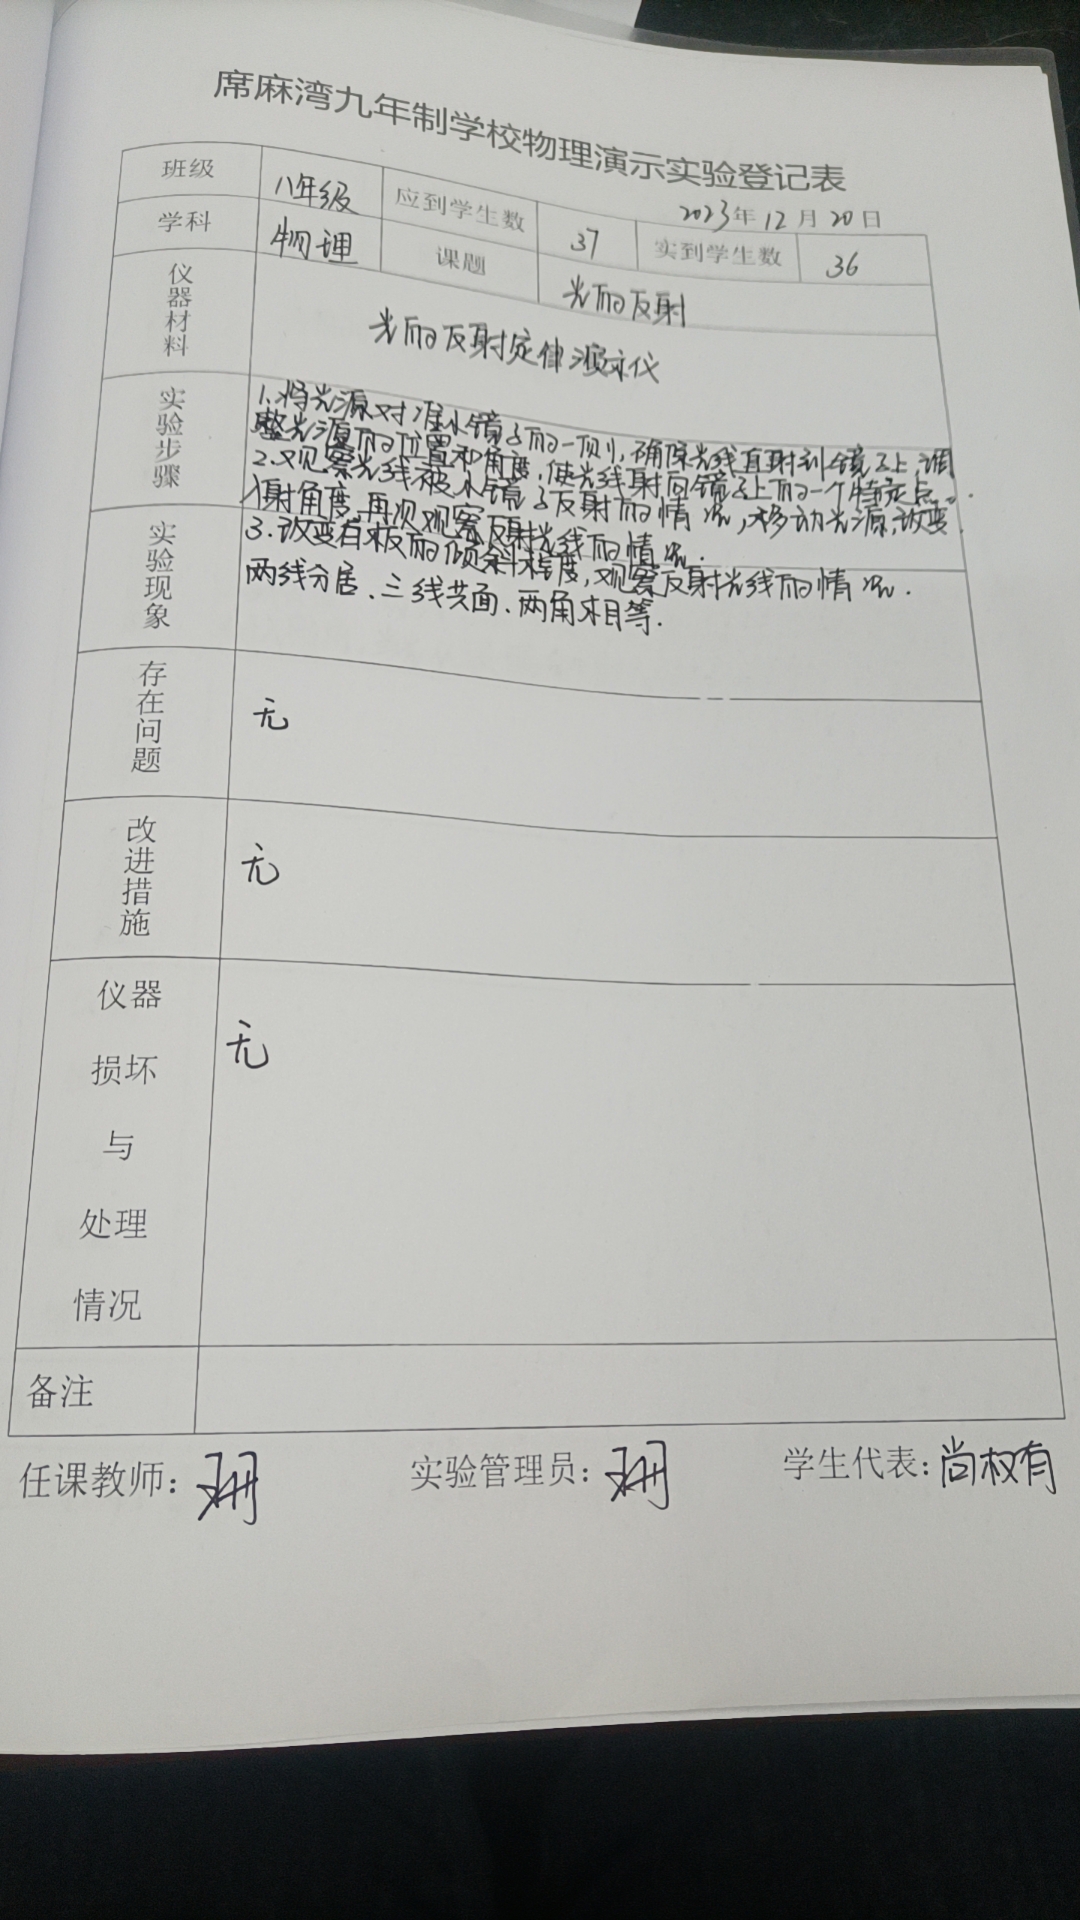 席麻湾九年制学校物理演示实验登记表
2023年12月20日
班级 八年级 应到学生数 37 实到学生数 36
学科 物理 课题 光的反射
仪器材料 光的反射定律演示仪
实验步骤
1.将光源对准小镜子的一侧,确保光线直射到镜子上,调
整光源的位置和角度,使光线射向镜子上的一个特定点。
2.观察光线被小镜子反射的情况,移动光源,改变
入射角度,再次观察反射光线的情况.
3.改变右板的倾斜程度,观察反射光线的情况.
实验现象
两线分居、三线共面、两角相等.
存在问题 无
改进措施 无
仪器
损坏
与
处理
情况
无
备注
任课教师: 实验管理员: 学生代表:尚权有